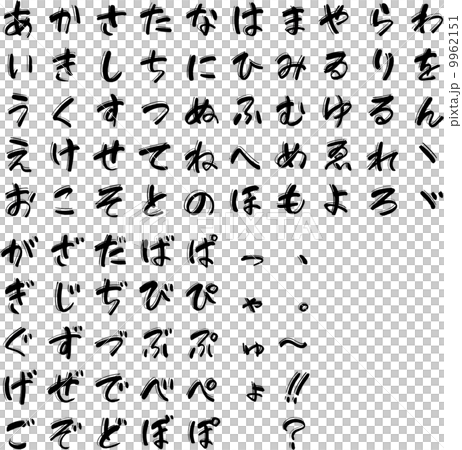 あ か さ た な は ま や ら わ
い き し ち に ひ み ゐ り を
う く す つ ぬ ふ む ゆ る ん
え け せ て ね へ め ゑ れ ヽ
お こ そ と の ほ も よ ろ ヾ
が ざ だ ば ぱ っ 、
ぎ じ ぢ び ぴ ゃ 。
ぐ ず づ ぶ ぷ ゅ 〜
げ ぜ で べ ぺ ょ !!
ご ぞ ど ぼ ぽ ?
PIXTA
pixta.jp - 9962151